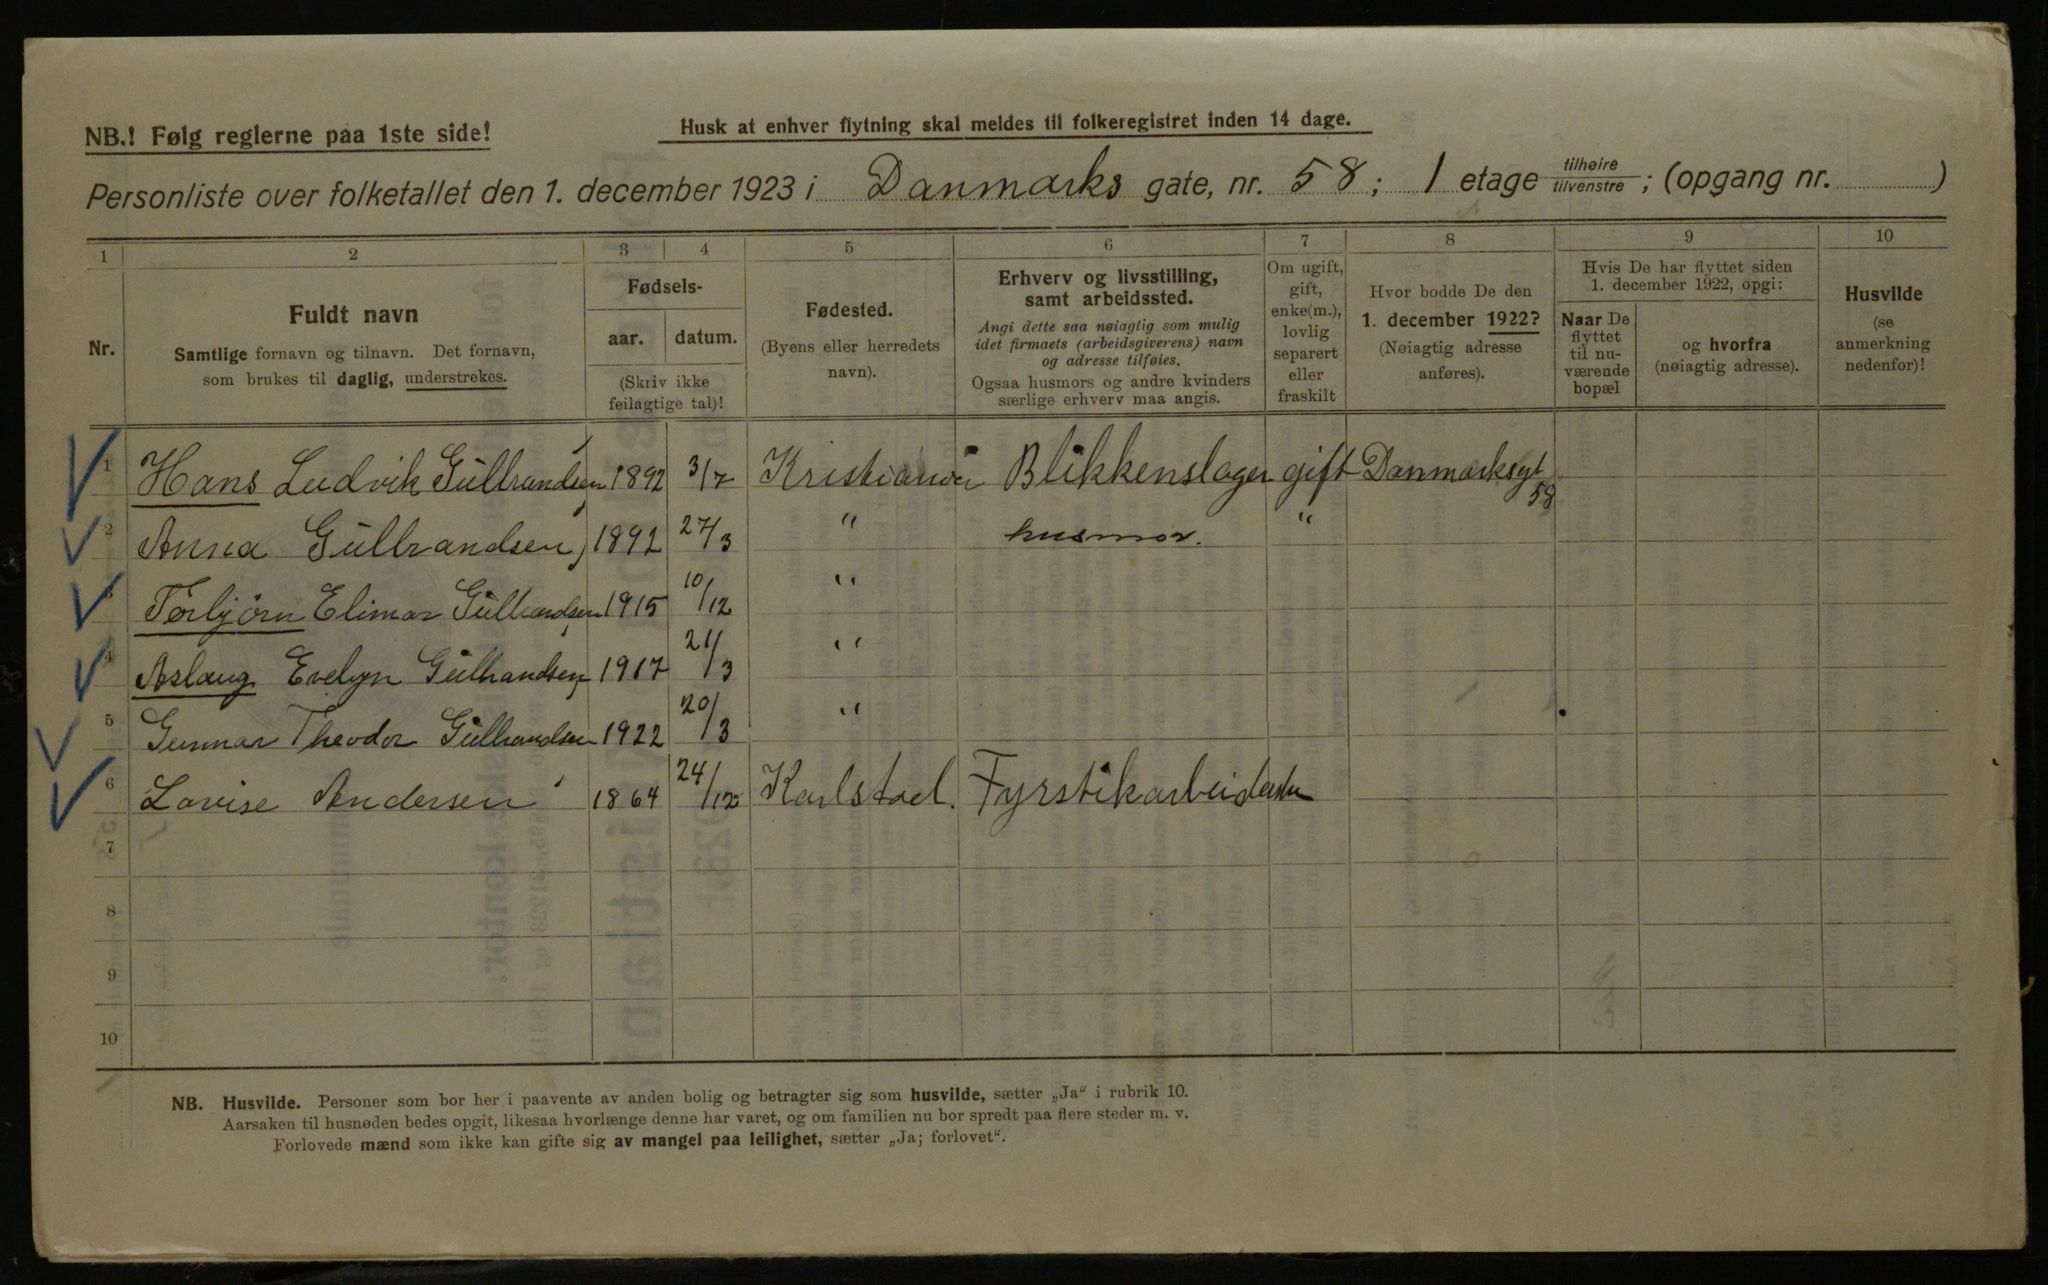 NB.! Følg reglerne paa 1ste side!
Husk at enhver flytning skal meldes til folkeregistret inden 14 dage.
Personliste over folketallet den 1. december 1923 i Danmarks gate, nr. 58; 1 etage tilhøire/tilvenstre; (opgang nr. )
1 2 3 4 5 6 7 8 9 10
Nr.
Fuldt navn
Samtlige fornavn og tilnavn. Det fornavn,
som brukes til daglig, understrekes.
Fødsels-
aar. datum.
(Skriv ikke
feilagtige tal)!
Fødested.
(Byens eller herredets
navn).
Erhverv og livsstilling,
samt arbeidssted.
Angi dette saa nøiagtig som mulig
idet firmaets (arbeidsgiverens) navn
og adresse tilføies.
Ogsaa husmors og andre kvinders
særlige erhverv maa angis.
Om ugift,
gift,
enke(m.),
lovlig
separert
eller
fraskilt
Hvor bodde De den
1. december 1922?
(Nøiagtig adresse
anføres).
Hvis De har flyttet siden
1. december 1922, opgi:
Naar De
flyttet
til nu-
værende
bopæl
og hvorfra
(nøiagtig adresse).
Husvilde
(se
anmerkning
nedenfor)!
1 Hans Ludvik Gülbrandsen 1892 3/7 Kristiania Blikkenslager gift Danmarksgt
58
2 Anna Gülbrandsen, 1892 27/3 " husmor. "
3 Torbjörn Elimar Gülbrandsen 1915 10/12 "
4 Aslaug Evelyn Gülbrandsen 1917 21/3 "
5 Gunnar Theodor Gülbrandsen 1922 20/3 "
6 Lovise Andersen 1864 24/12 Karlstad. Fyrstikarbeiderske
7
8
9
10
NB. Husvilde. Personer som bor her i paavente av anden bolig og betragter sig som husvilde, sætter „Ja“ i rubrik 10.
Aarsaken til husnøden bedes opgit, likesaa hvorlænge denne har varet, og om familien nu bor spredt paa flere steder m. v.
Forlovede mænd som ikke kan gifte sig av mangel paa leilighet, sætter „Ja; forlovet“.